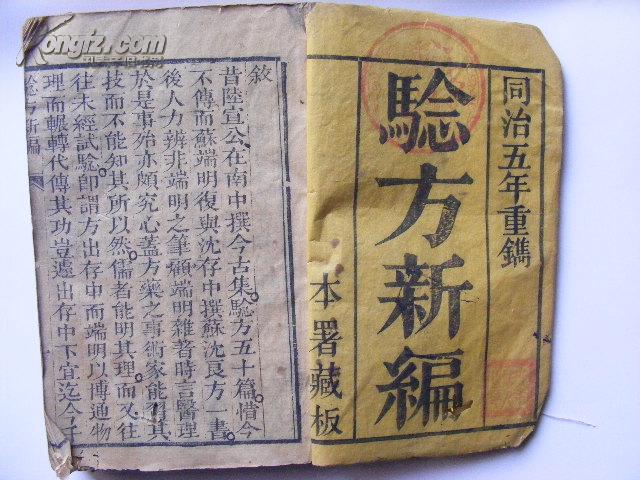 同治五年重鐫
驗方新編
本署藏板
敘
昔陸宣公在南中撰今古集驗方五十篇惜今
不傳而蘇端明復與沈存中撰蘇沈良方一書
後人力辨非端明之筆顧端明雜著時言醫理
於是事殆亦頗究心蓋方藥之事術家能習其
技而不能知其所以然儒者能明其理而又往
往未經試驗即謂方出存中而端明以博通物
理而輾轉代傳其功豈遽出存中下宜迄今千
驗方新編
Kongfz.com